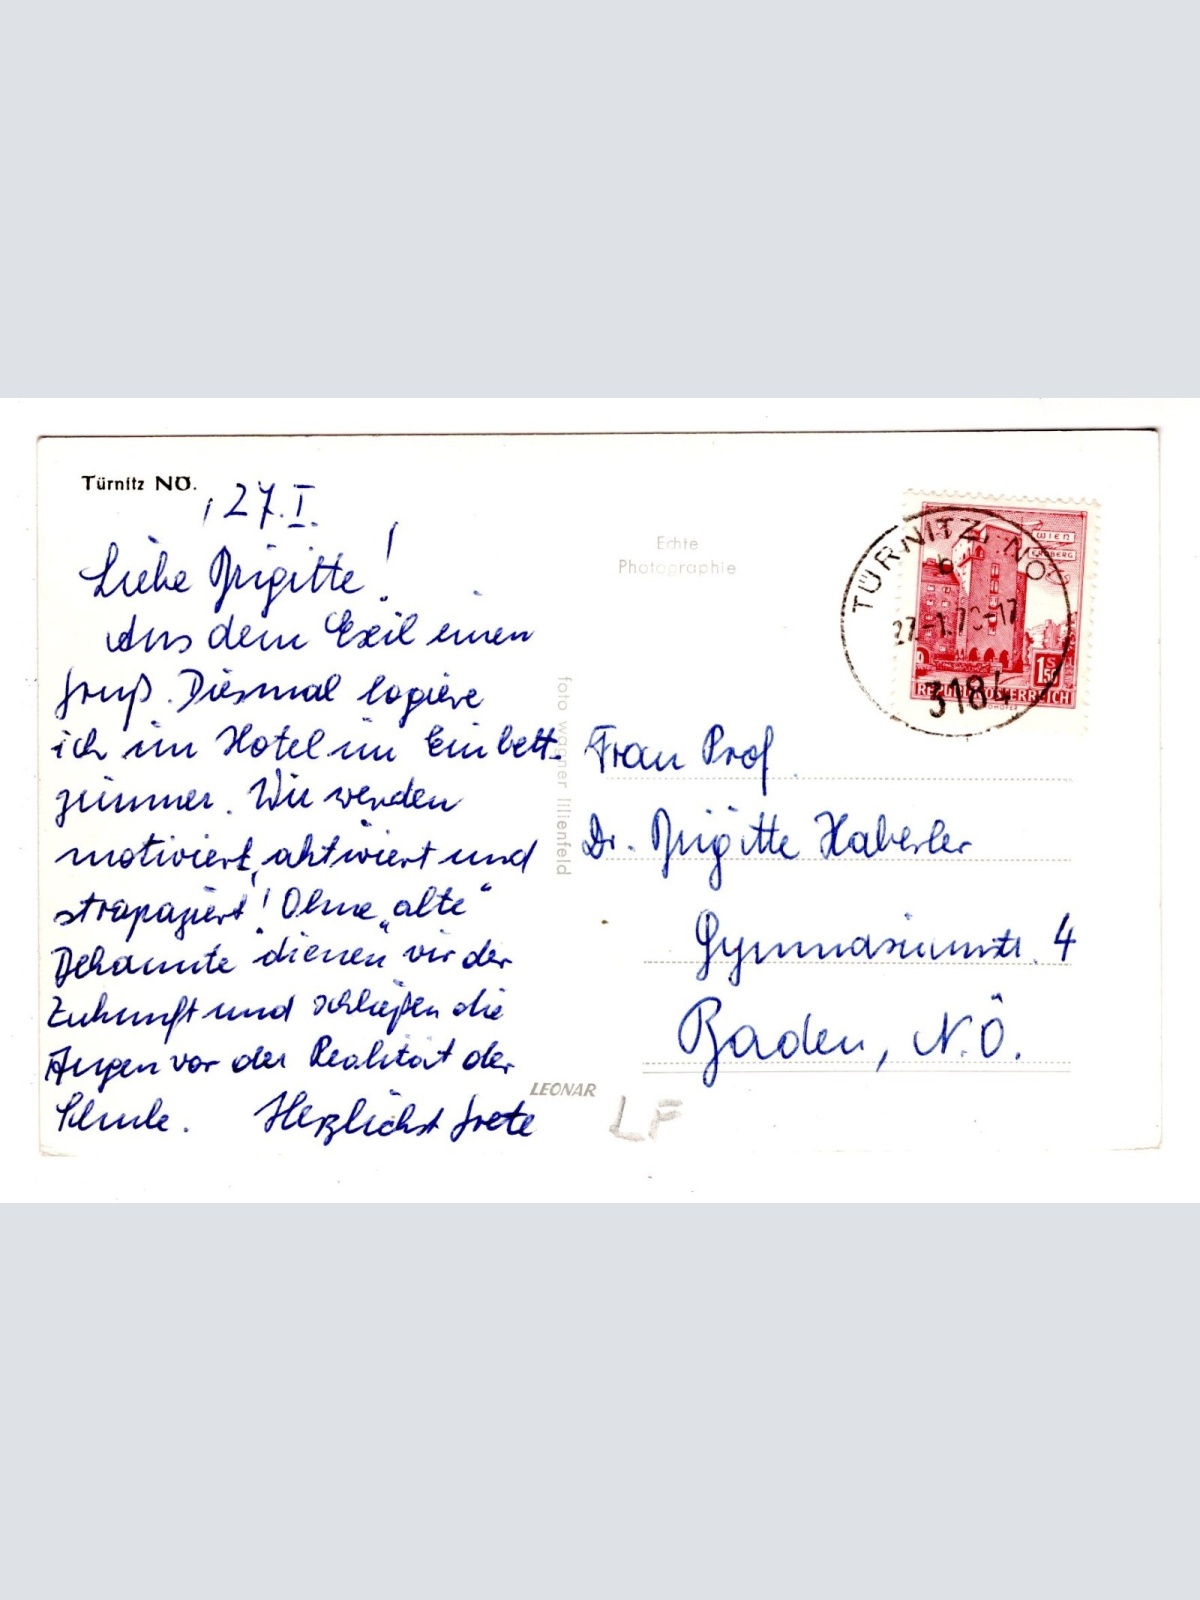 Türnitz NÖ.
, 27.I.
Liebe Brigitte!
Aus dem Exil einen
Gruß. Diesmal logiere
ich im Hotel im Einbett-
zimmer. Wir werden
motiviert, aktiviert und
strapaziert! Ohne „alte“
Bekannte „dienen“ wir der
Zukunft und schließen die
Augen vor der Realität der
Schule. Herzlichst Grete
foto wagner lilienfeld
LEONAR
LF
Echte
Photographie
TÜRNITZ, NÖ
b
3184
WIEN
ERDBERG
1S50
REPUBLIK ÖSTERREICH
Frau Prof
Dr. Brigitte Haberler
Gymnasiumstr. 4
Baden, N.Ö.